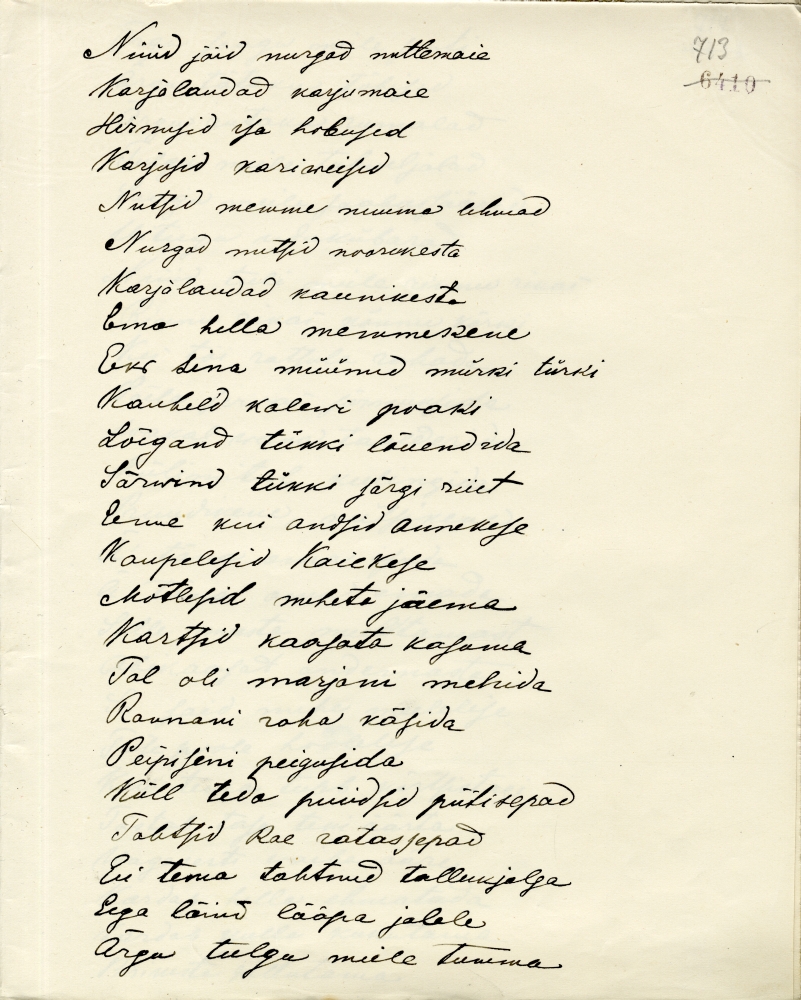 713
6410
Nüüd jäid nurgad nuttemaie
Karjalaudad karjumaie
Hirnusid isa hobused
Karjusid kariweised
Nutsid memme numma lehmad
Nurgad nutsid noorukesta
Karjalaudad kaunikesta
Ema hella memmekene
Eks sina müünud mürki türki
Kauheld kalewi poaki
Lõigand tükki lõuendida
Särwind tükki särgi riiet
Enne kui andsid Annekese
Kaupelesid Kaiekese
Mõtlesid meheta jäema
Kartsid kaasata kasuma
Tal oli marjani mehida
Raunani raha käsida
Peipiseni peigusida
Küll teda püüdsid püti sepad
Tahtsid Rae ratassepad
Ei tema tahtnud tallukjalga
Ega läind lääpa jalale
Ärgu tulgu miele tumma